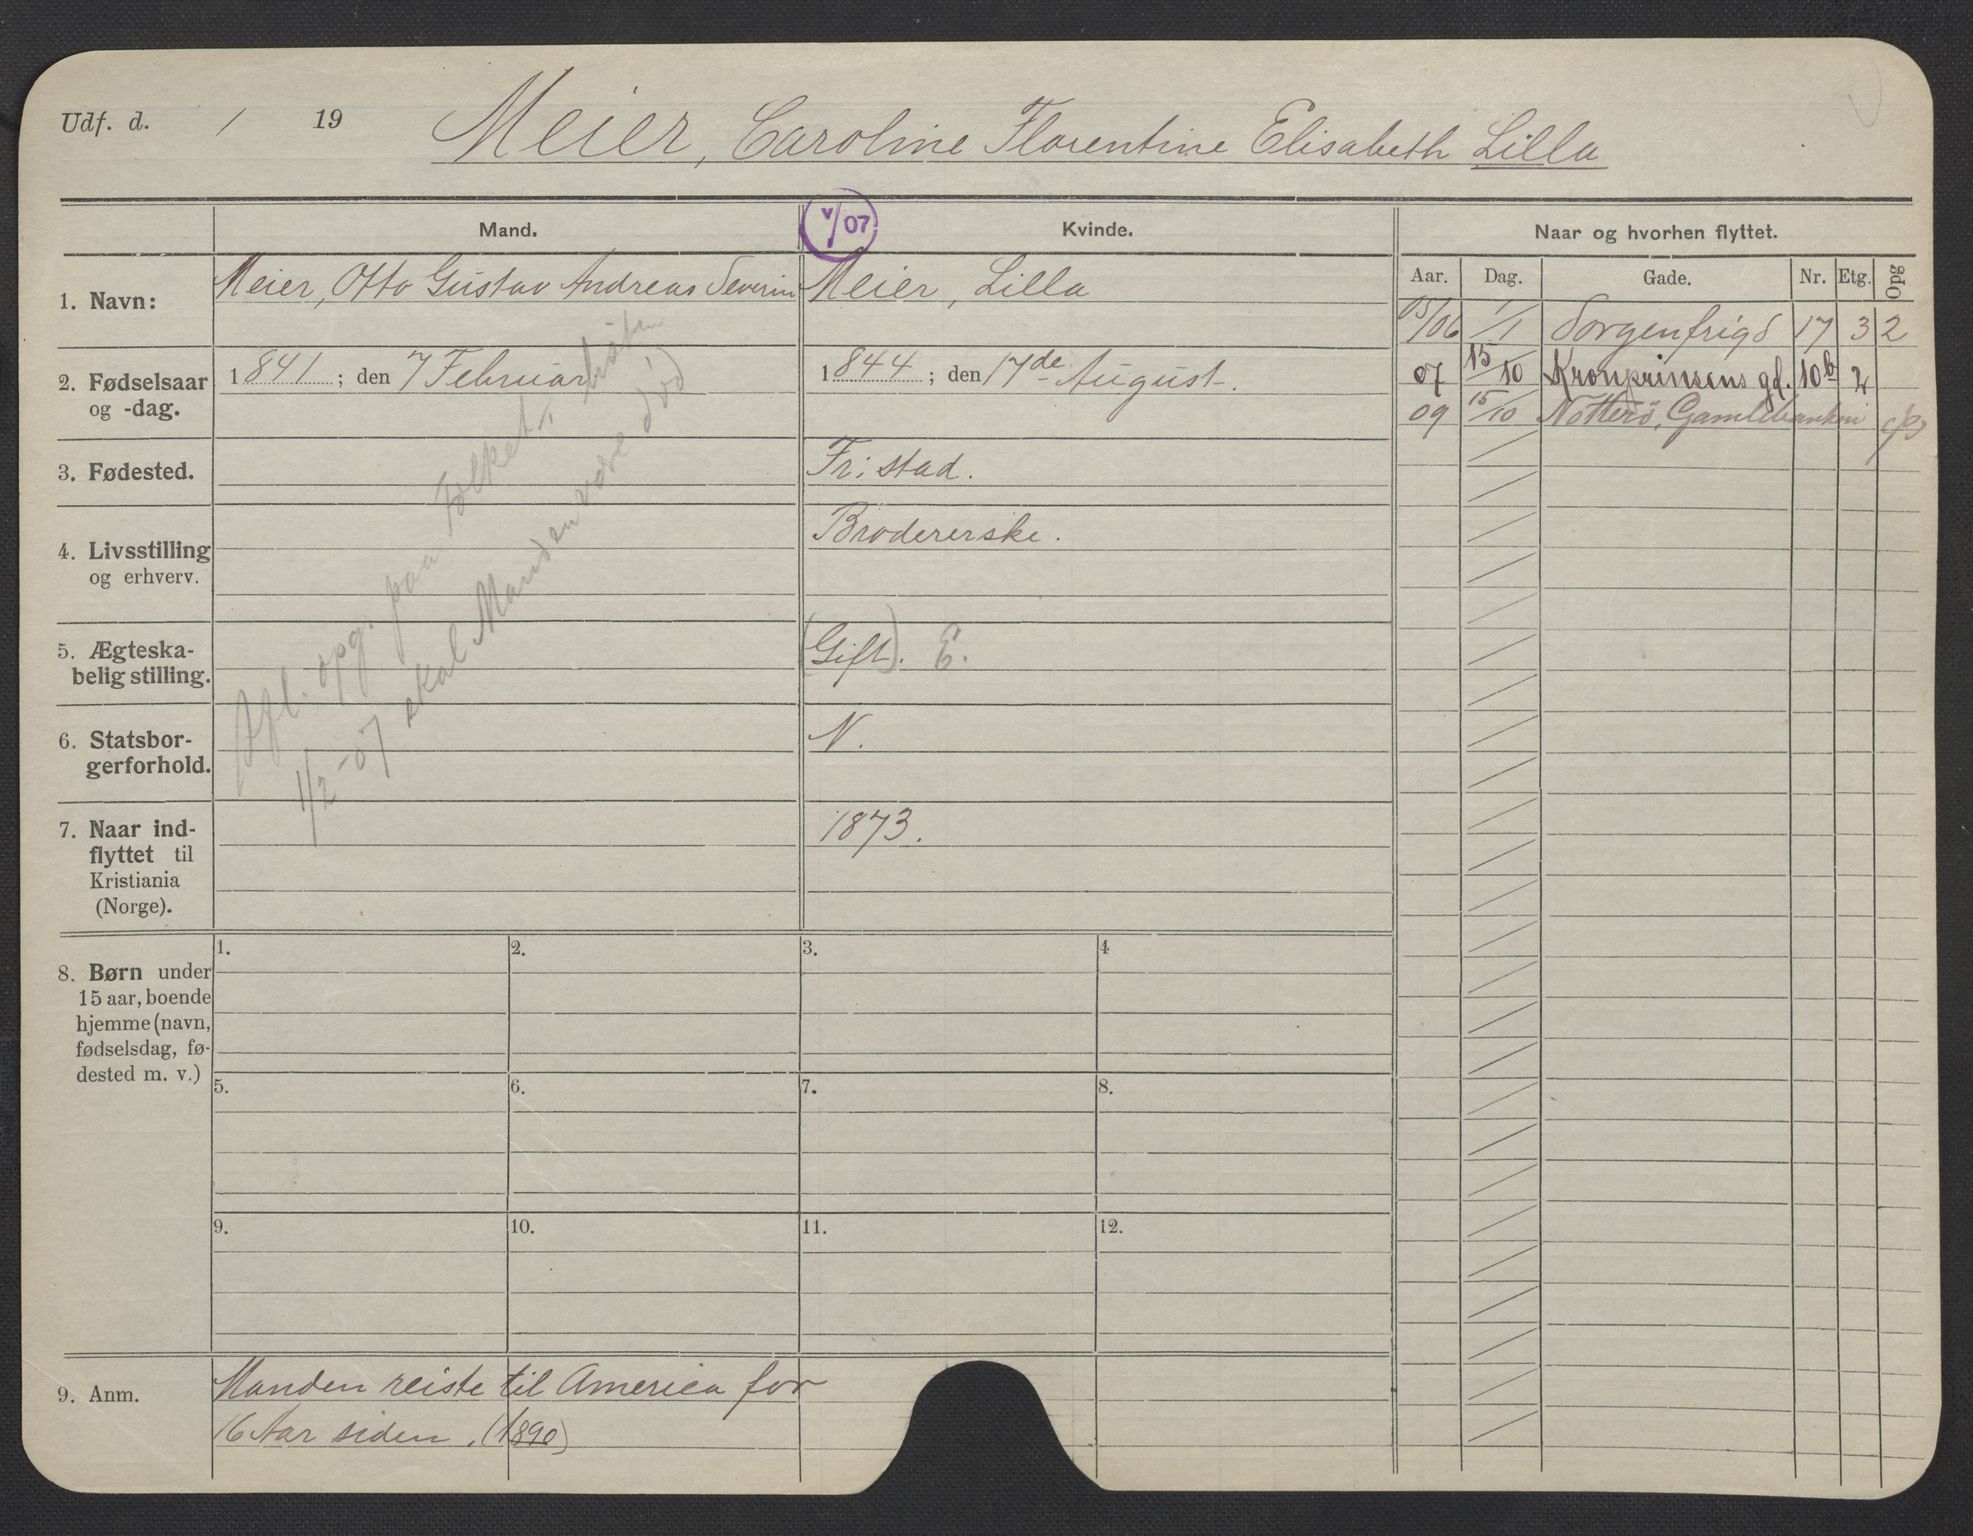 Udf. d. / 19 Meier, Caroline Florentine Elisabeth Lilla
Mand.
v/07
Kvinde.
Naar og hvorhen flyttet.
Aar. Dag. Gade. Nr. Etg. Opg
1. Navn:
Meier, Otto Gustav Andreas Severin
Meier, Lilla
05/06 1/1 Sorgenfrigd 17 3 2
07 15/10 Kronprinsens gd. 10b 2
09 15/10 Nötterö, Gamlebanken
2. Fødselsaar
og -dag.
1841; den 7 Februar
1844; den 17de August.
3. Fødested.
Fr: stad.
4. Livsstilling
og erhverv.
Brodererske.
5. Ægteska-
belig stilling.
(Gift). E.
6. Statsbor-
gerforhold.
N.
7. Naar ind-
flyttet til
Kristiania
(Norge).
1873.
opg. paa Folket.listen
1/2-07 skal Manden være død
8. Børn under
15 aar, boende
hjemme (navn,
fødselsdag, fø-
dested m. v.)
1. 2. 3. 4
5. 6. 7. 8.
9. 10. 11. 12.
9. Anm.
Manden reiste til America for
16 Aar siden. (1890)